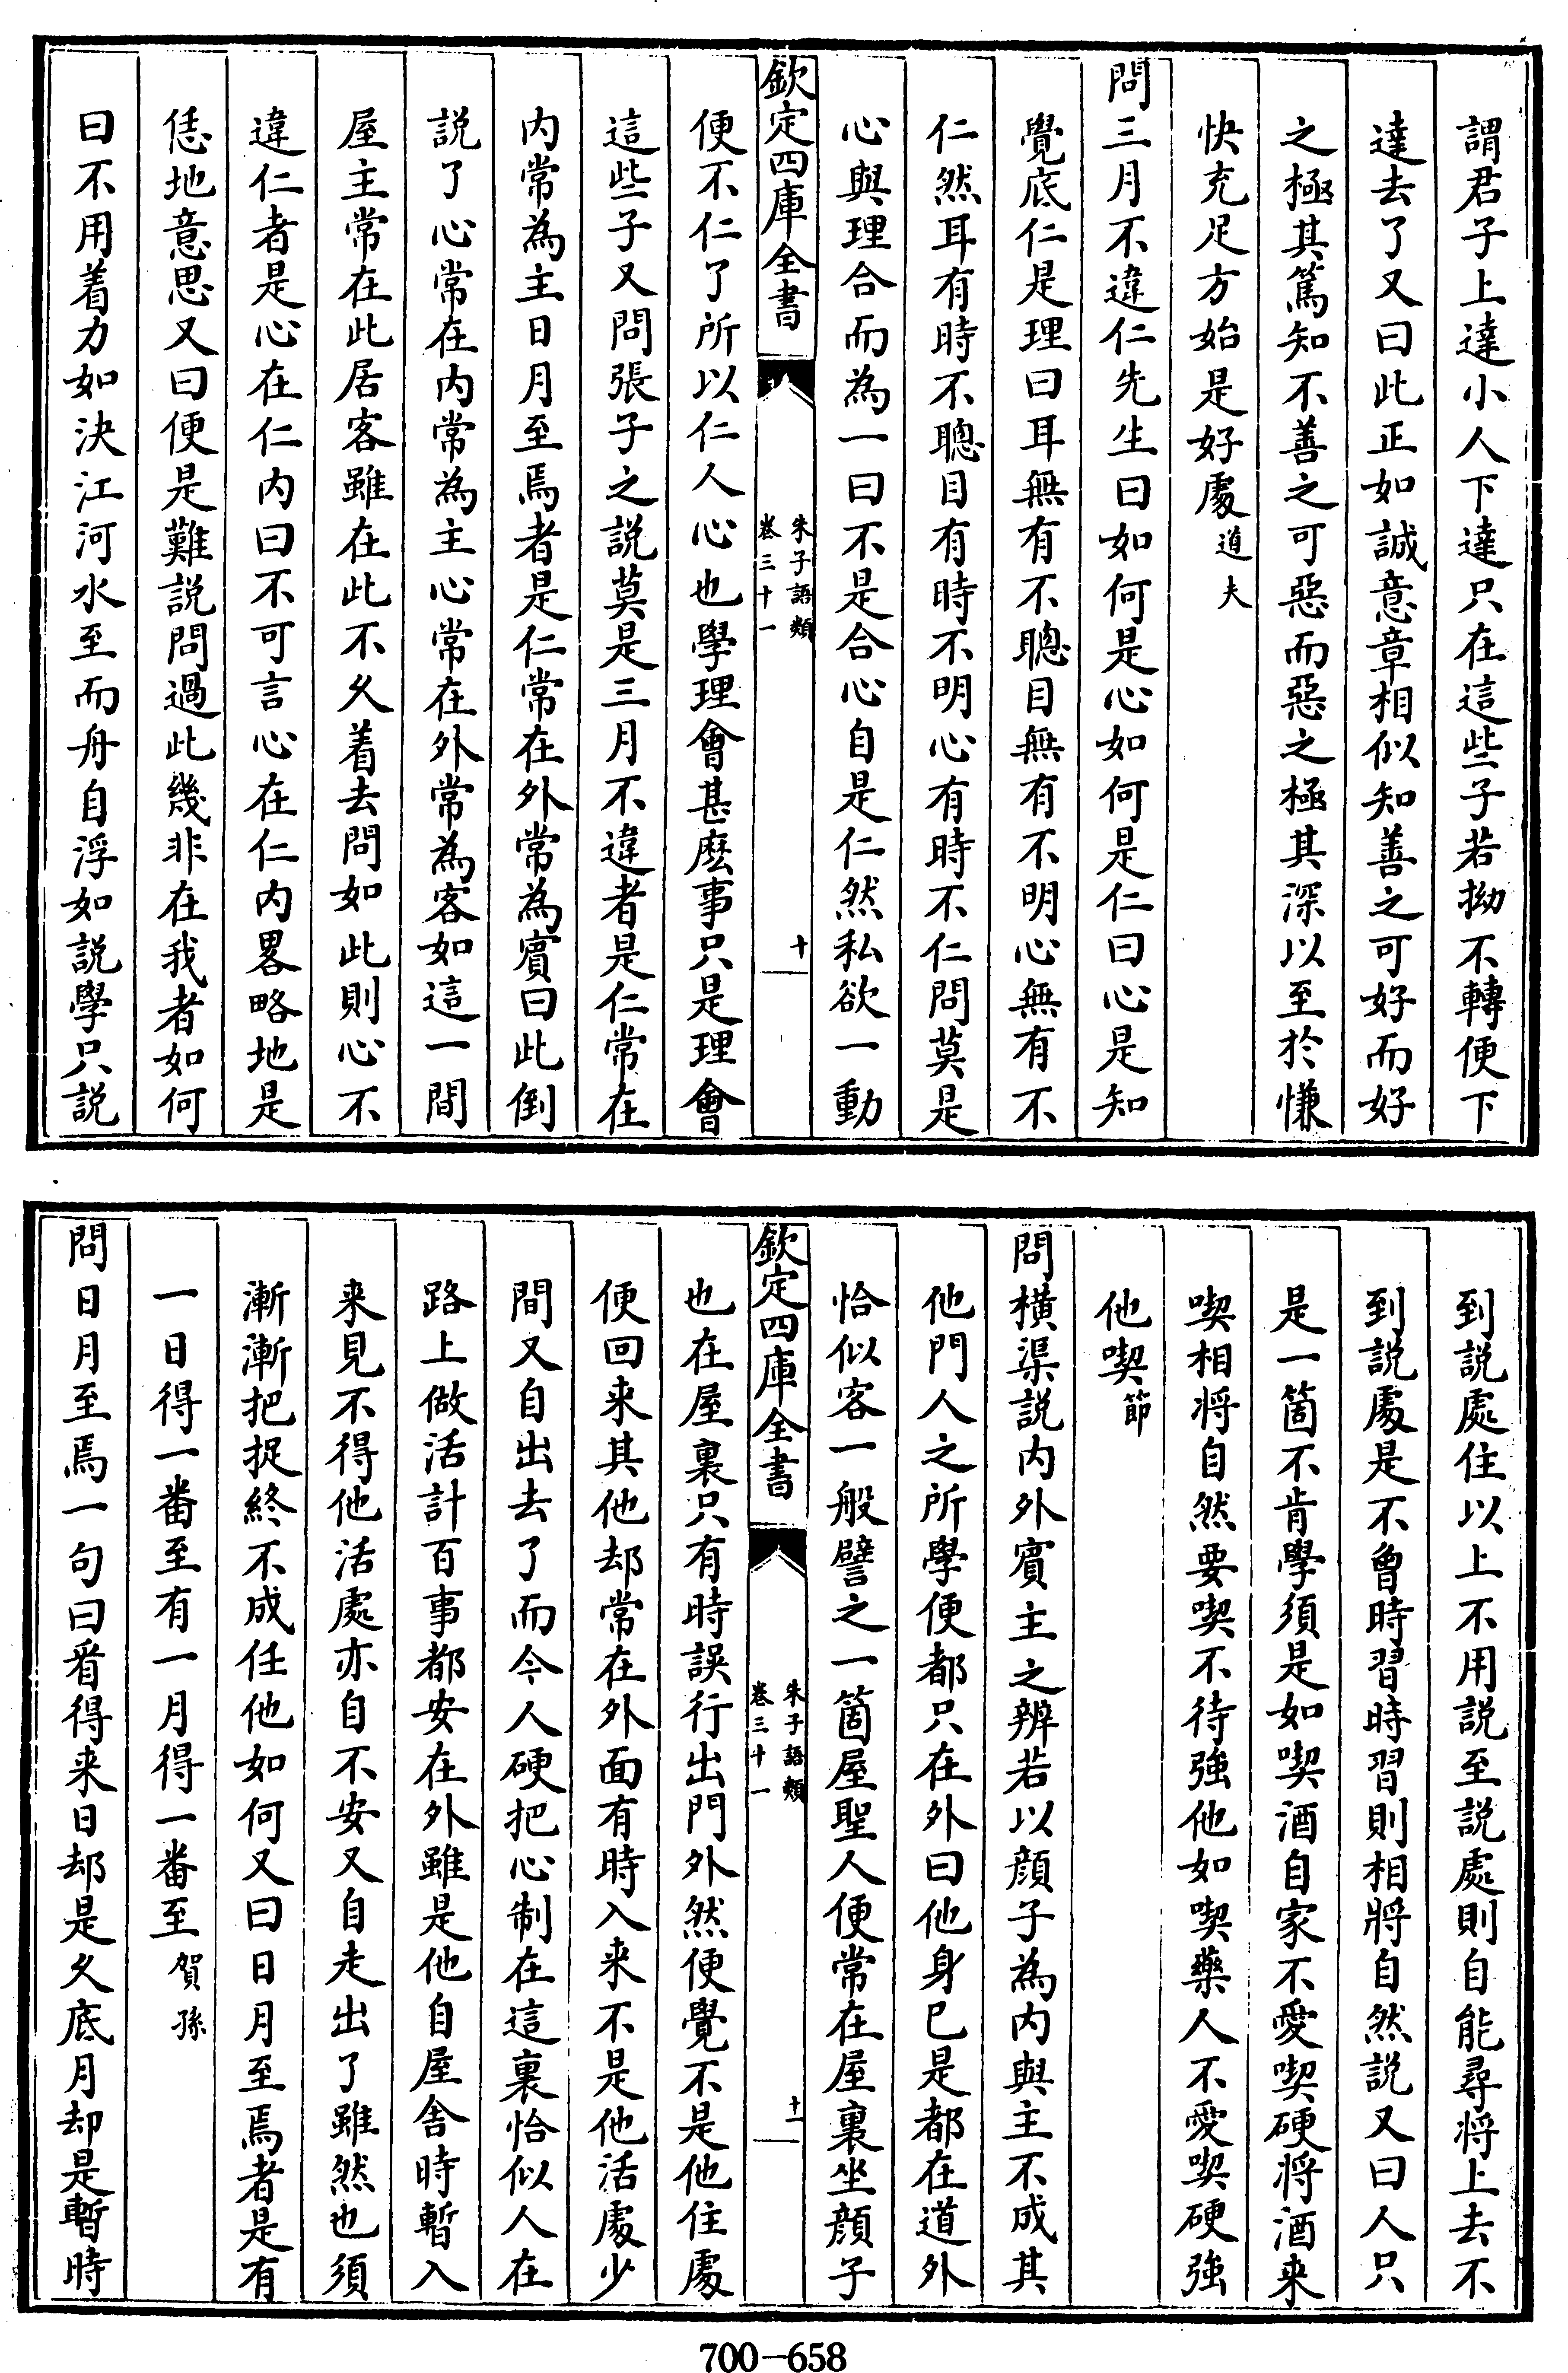 謂君子上達小人下達只在這些子若拗不轉便下
達去了又曰此正如誠意章相似知善之可好而好
之極其篤知不善之可惡而惡之極其深以至於慊
快充足方始是好處道夫
問三月不違仁先生曰如何是心如何是仁曰心是知
覺底仁是理曰耳無有不聰目無有不明心無有不
仁然耳有時不聰目有時不明心有時不仁問莫是
心與理合而為一曰不是合心自是仁然私欲一動
欽定四庫全書
朱子語類
卷三十一
十
便不仁了所以仁人心也學理會甚麽事只是理會
這些子又問張子之説莫是三月不違者是仁常在
内常為主日月至焉者是仁常在外常為賓曰此倒
説了心常在内常為主心常在外常為客如這一間
屋主常在此居客雖在此不乆着去問如此則心不
違仁者是心在仁内曰不可言心在仁内畧略地是
恁地意思又曰便是難説問過此幾非在我者如何
曰不用着力如決江河水至而舟自浮如説學只説
到説處住以上不用説至説處則自能尋將上去不
到説處是不曾時習時習則相將自然説又曰人只
是一箇不肯學須是如喫酒自家不愛喫硬將酒来
喫相將自然要喫不待強他如喫藥人不愛喫硬強
他喫節
問横渠説内外賓主之辨若以顔子為内與主不成其
他門人之所學便都只在外曰他身已是都在道外
恰似客一般譬之一箇屋聖人便常在屋裏坐顔子
欽定四庫全書
朱子語類
卷三十一
十一
也在屋裏只有時誤行出門外然便覺不是他住處
便回来其他却常在外面有時入来不是他活處少
間又自出去了而今人硬把心制在這裏恰似人在
路上做活計百事都安在外雖是他自屋舎時暫入
来見不得他活處亦自不安又自走出了雖然也須
漸漸把捉終不成任他如何又曰日月至焉者是有
一日得一番至有一月得一番至賀孫
問日月至焉一句曰看得来日却是乆底月却是暫時
700-658